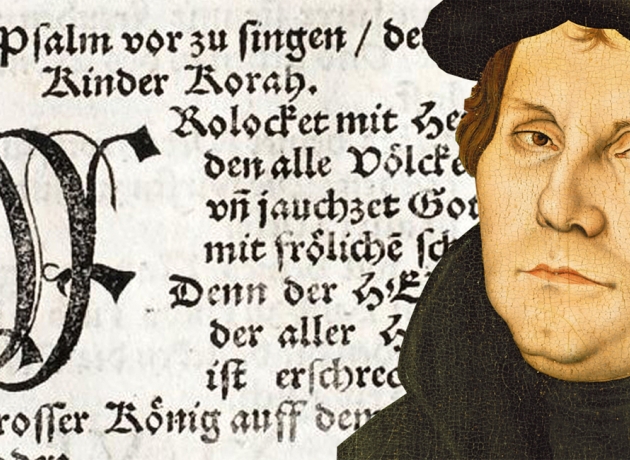 Psalm vor zu singen / de
Kinder Korah.
Rolocket mit He
den alle Völcke
vñ jauchzet Got
mit frölichē sch
Denn der HE
der aller H
ist erschrec
rosser König auff dem